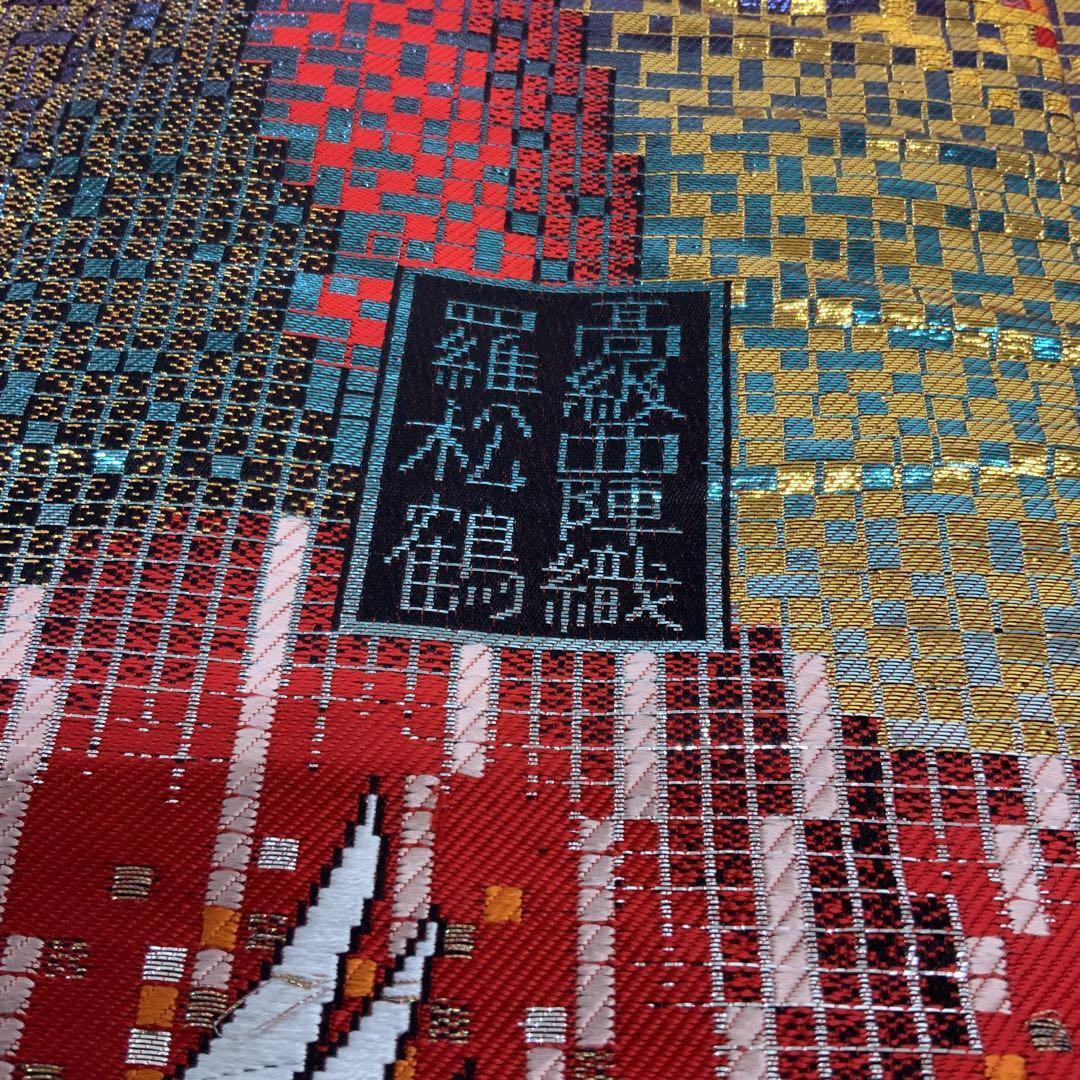 高級西陣織
羅松鶴